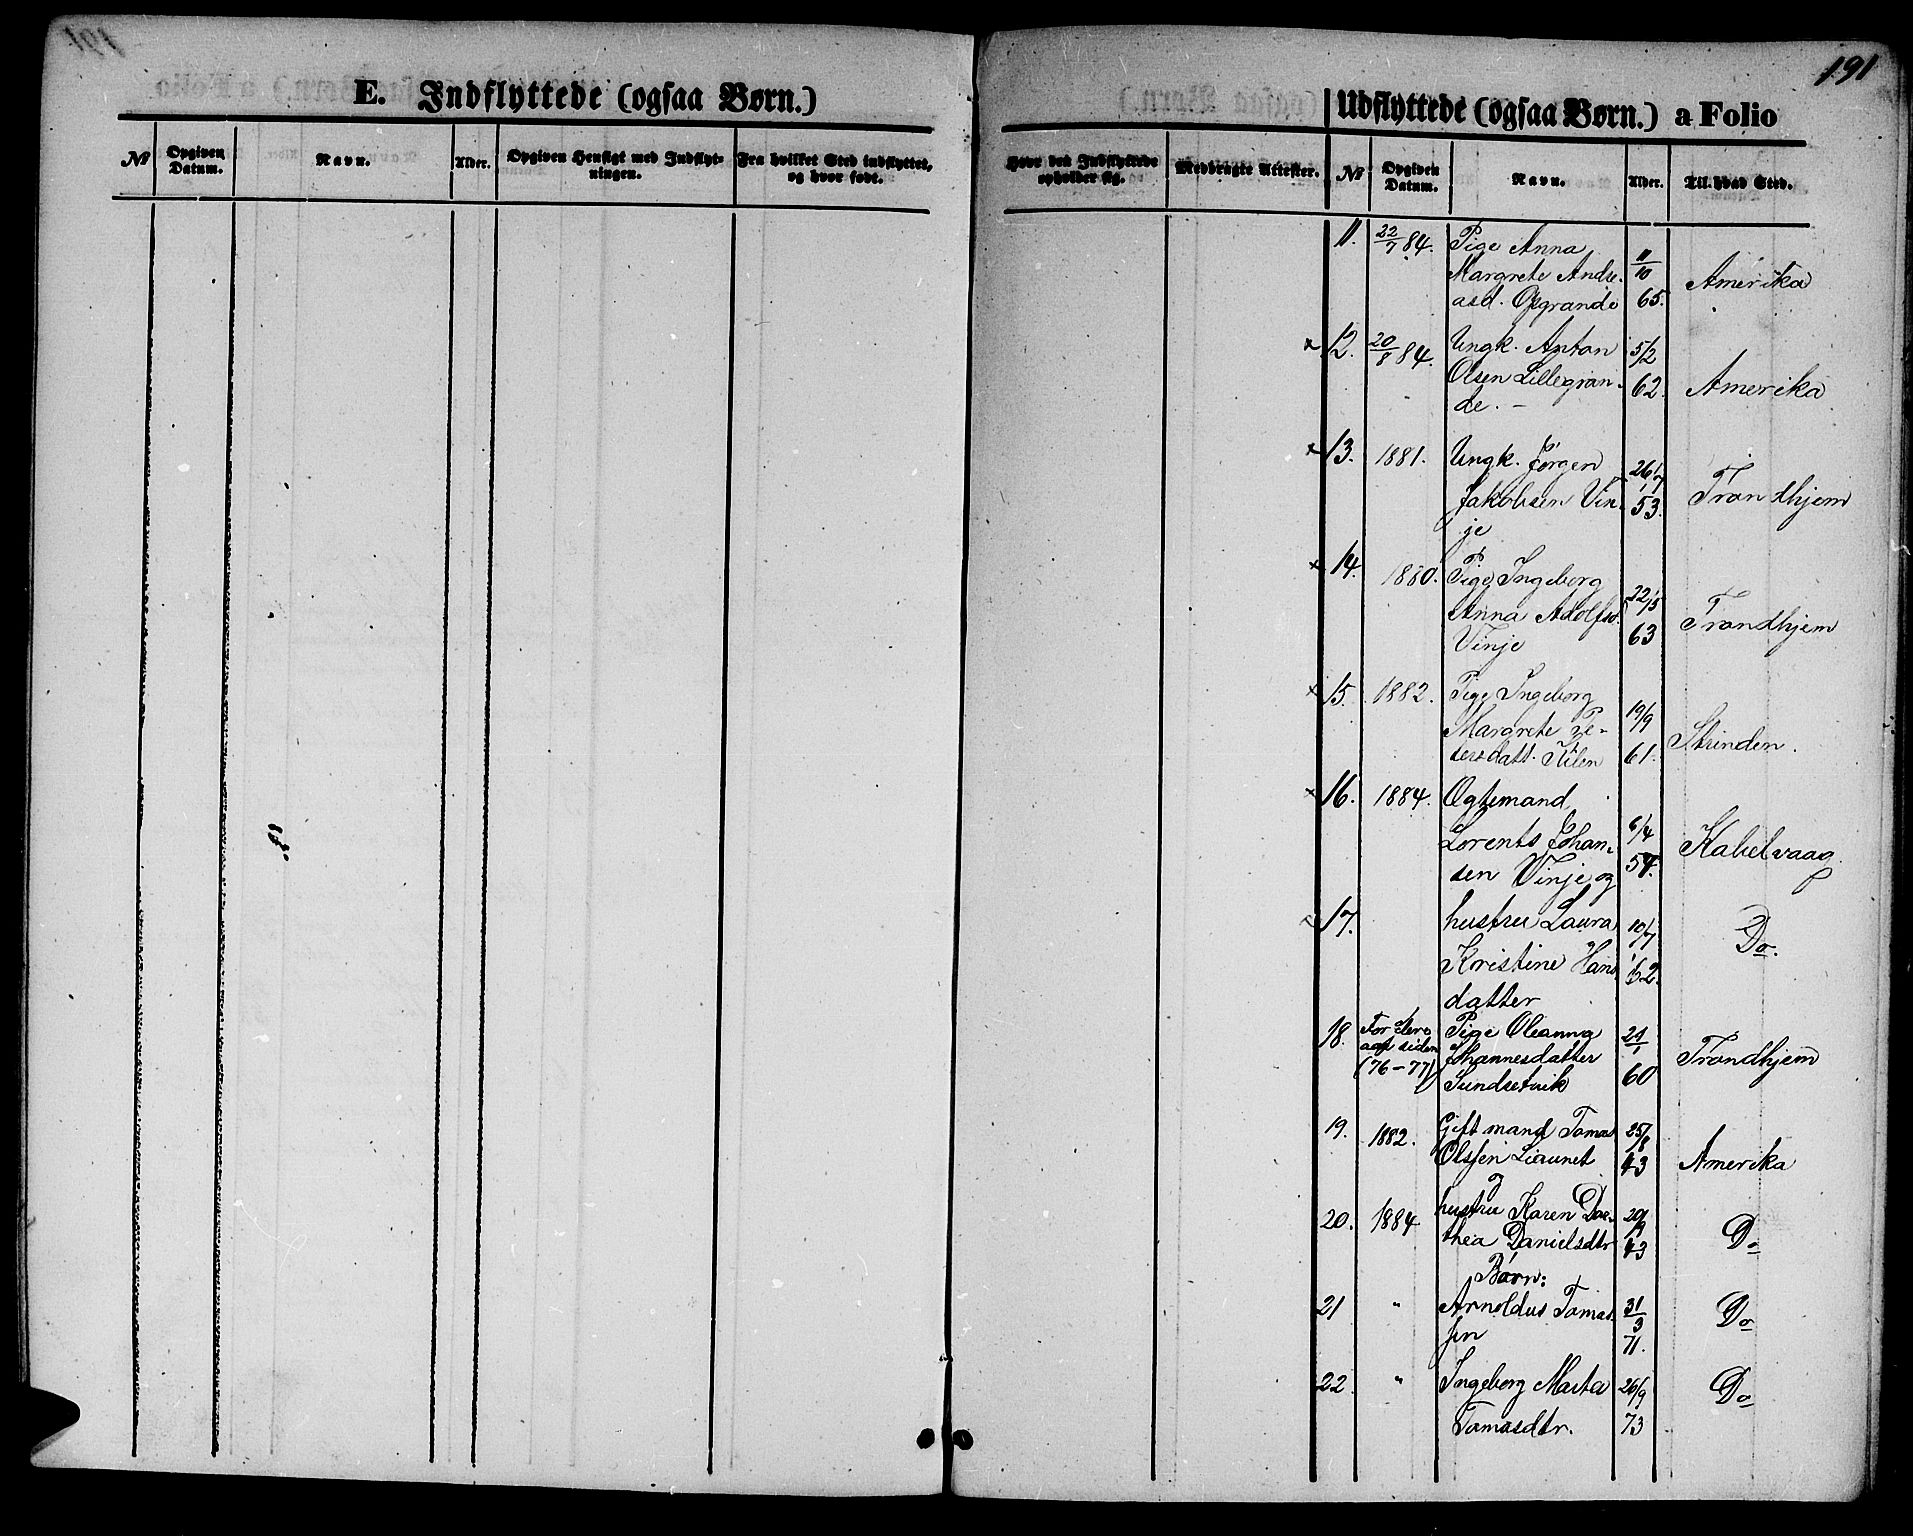 191
E. Indflyttede (ogsaa Børn.)
Udflyttede (ogsaa Børn.) a Folio
№ Opgiven Datum. Navn. Alder. Opgiven Hensigt med Indflytningen. Fra hvilket Sted indflyttet, og hvor født.
Hvor den Indflyttede opholder sig. Medbragte Attester. № Opgiven Datum. Navn. Alder. Til hvad Sted.
11. 22/7 84. Pige Anna
Margrete Andre- 11/10
asd. Opgrande 65. Amerika
× 12. 20/8 84. Ungk. Anton 5/2
Olsen Lillegran- 62. Amerika
de. –
× 13. 1881. Ungk. Jørgen 26/7
Jakobsen Vin- 53. Trondhjem
je
× 14. 1880. Pige Ingeborg
Anna Adolfsd. 22/5
Vinje 63 Trondhjem
× 15. 1882. Pige Ingeborg
Margrete Pe- 19/9
tersdatt. Kilen 61. Strinden.
× 16. 1884. Ægtemand
Lorents Johan- 6/4
sen Vinje og 54. Kabelvaag.
× 17. hustru Laura 10/7
Kristine Hans 62. Do.
datter
18. For flere Pige Oleanna 21/1
aar siden Johannesdatter
(76–77) Sundsetvik 60 Trondhjem
19. 1882. Gift mand Tomas 25/8
Olssen Liaunet 43 Amerika
og
20. 1884 hustru Karen Dor- 20/9
thea Danielsdtr 43 Do
Børn:
21 " Arnoldus Tomas- 31/3 Do
sen 71.
22. " Ingeborg Marta 26/9 Do
Tomasdtr. 73